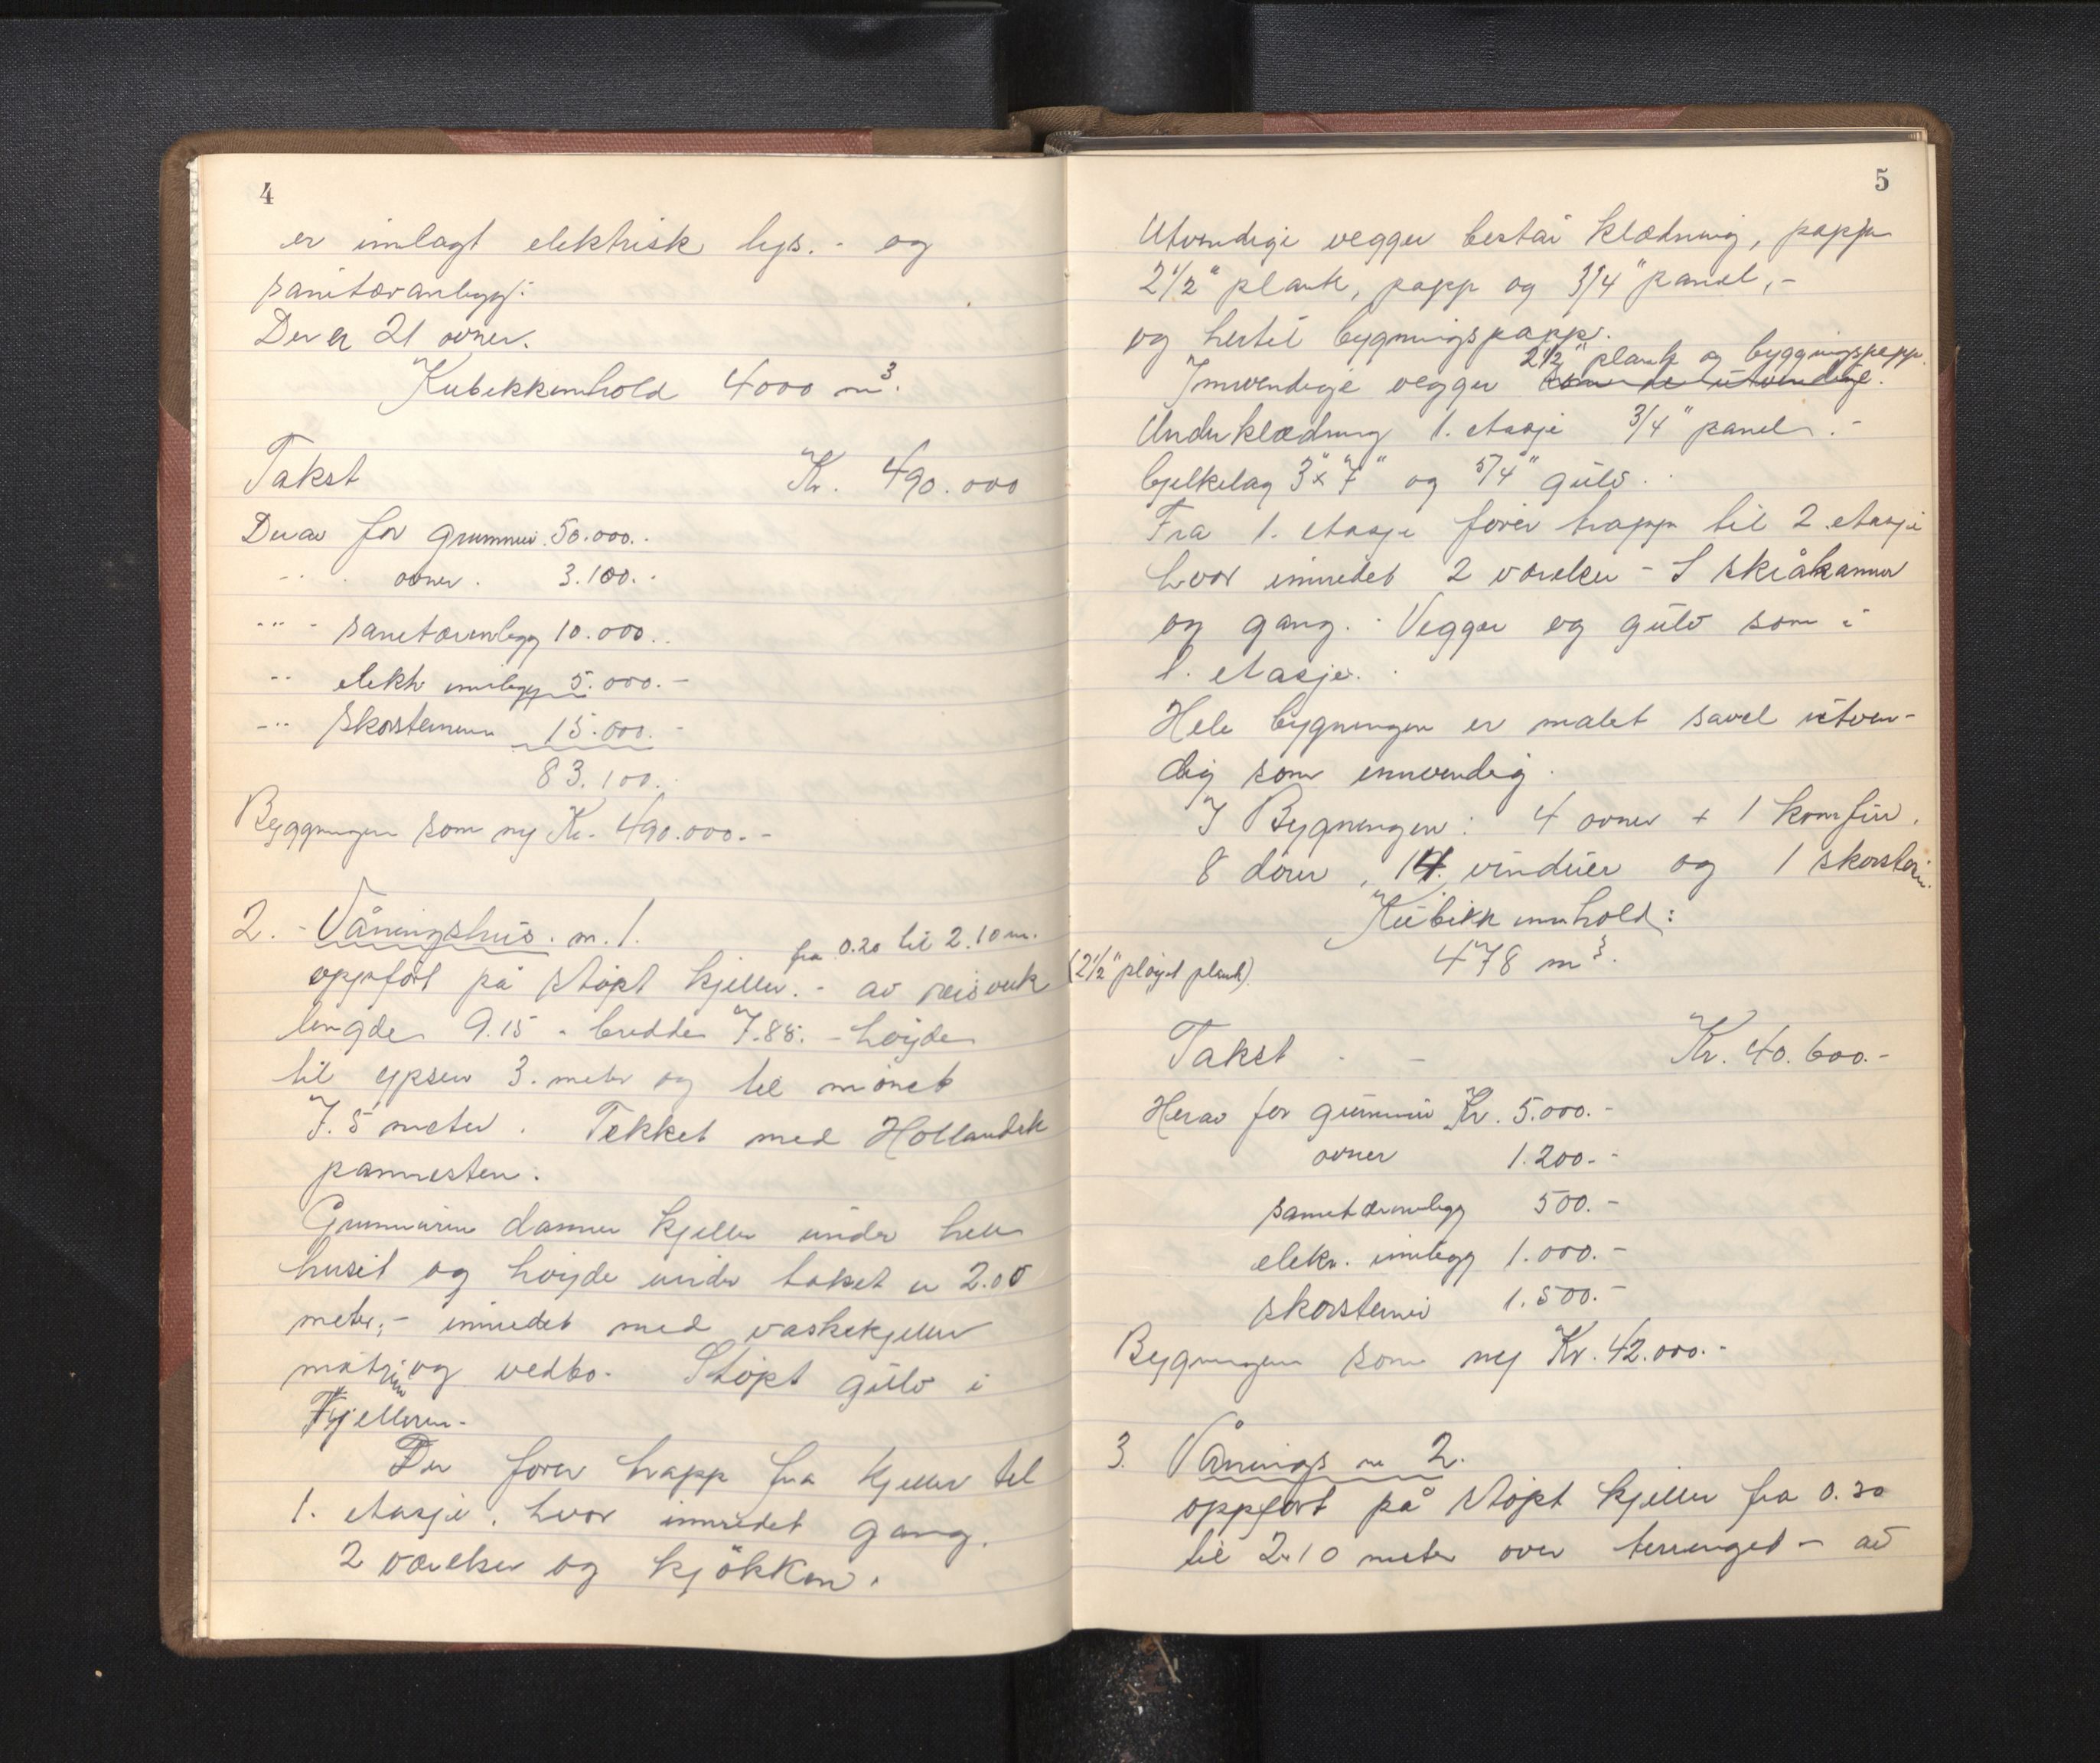 4
er innlagt elektrisk lys. - og
sanitæranlegg.
Der er 21 ovner.
Kubikkinnhold 4000 m³.
Takst Kr. 490.000
Derav for grunnmur 50.000.-
" " ovner. 3.100.-
" " sanitæranlegg 10.000.-
" " elektr innlegg 5.000.-
" " skorsteinene 15.000.-
83.100.-
Byggningen som ny Kr. 490.000.-
2. - Våningshus. nr. 1.
fra 0.20 til 2.10 m.
oppført på støpt kjeller. - av reisverk (2½" pløyet plank)
lengde 9.15 - bredde 7.88. - høyde
til gpsen 3. meter og til mønet
7.5 meter. Tekket med Hollandsk
pannesten.
Grunnmuren danner kjeller under hele
huset og høyde under taket er 2.00
meter, - innredet med vaskekjeller
matrum og vedbo. Støpt gulv i
Kjelleren.
Der fører trapp fra kjeller til
1. etasje, hvor innredet gang,
2 værelser og kjökken.
5
Utvendige vegger består klædning, papp
2½" plank, papp og 3/4" panel, -
og hertil bygningspapp.
2½" plank og byggningspapp.
Innvendige vegger som de utvendige.
Underklædning 1. etasje 3/4" panel. -
bjelkelag 3" x 7" og 5/4" gulv.
Fra 1. etasje fører trapp til 2. etasje
hvor innredet 2 værelser - 2 skråkammer
og gang. Vegger og gulv som i
1. etasje.
Hele bygningen er malet såvel utven-
dig som innvendig.
I Bygningen: 4 ovner + 1 komfur.
8 dører, 14 vinduer og 1 skorstein.
Kubikk innhold:
478 m³.
Takst - - Kr. 40.600.-
Herav for grunnmur Kr. 5.000.-
ovner 1.200.-
sanitæranlegg 500.-
elektr. innlegg 1.000.-
skorstenen 1.500.-
Bygningen som ny Kr. 42.000.-
3. Vånings nr 2.
oppført på støpt kjeller fra 0.30
til 2.10 meter over terrenget - av